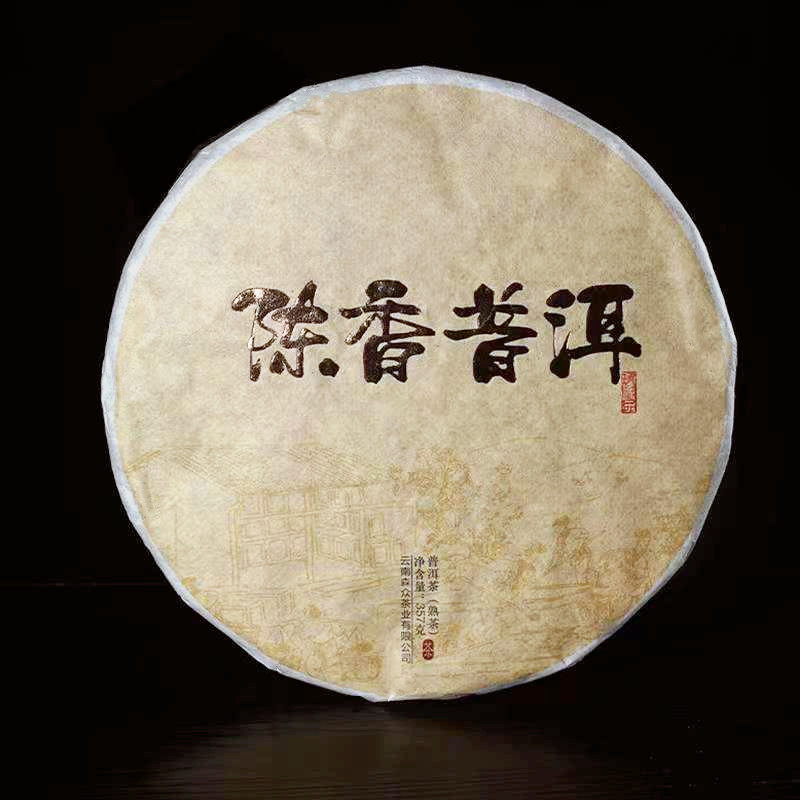 陈香普洱
普洱茶（熟茶）
净含量：357克
云南森众茶业有限公司
茶